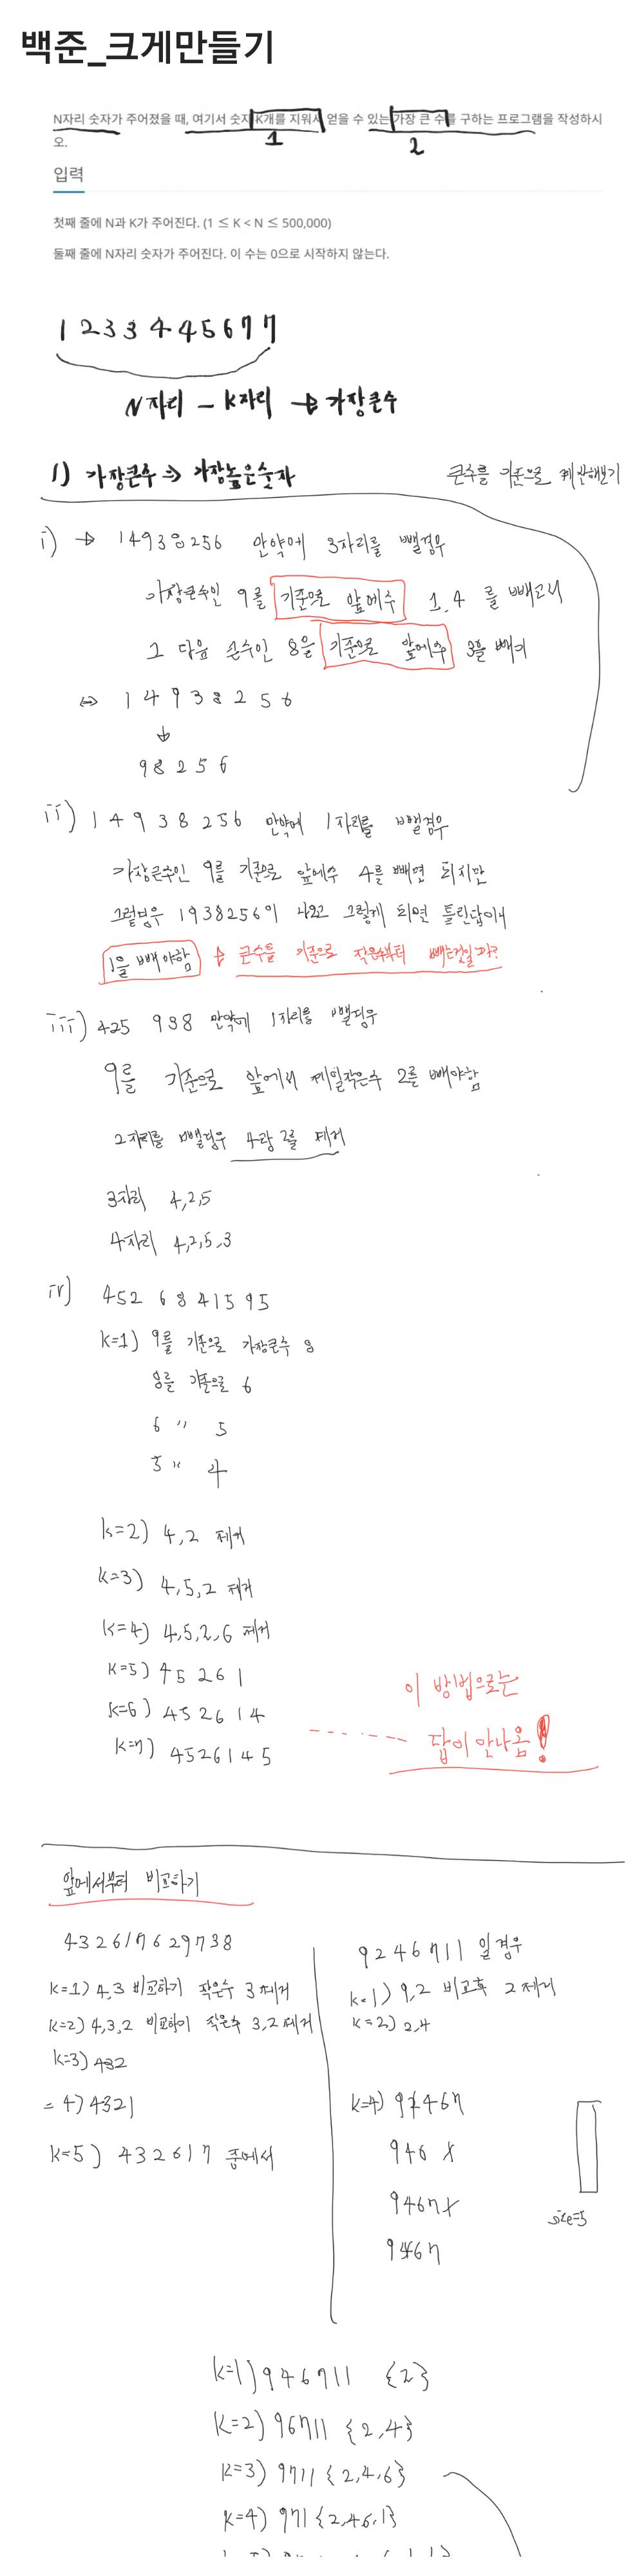 백준_크게만들기
N자리 숫자가 주어졌을 때, 여기서 숫자 K개를 지워서 얻을 수 있는 가장 큰 수를 구하는 프로그램을 작성하시
오.
1 2
입력
첫째 줄에 N과 K가 주어진다. (1 ≤ K < N ≤ 500,000)
둘째 줄에 N자리 숫자가 주어진다. 이 수는 0으로 시작하지 않는다.
1 2 3 3 4 4 5 6 7 7
N자리 - K자리 → 가장큰수
1) 가장큰수 ⇒ 가장높은숫자
큰수를 기준으로 계산해보기
i) → 14938256 만약에 3자리를 뺄경우
가장큰수인 9를 기준으로 앞에수 1,4 를 빼고서
그 다음 큰수인 8을 기준으로 앞에수 3을 빼기
⇔ 1 4 9 3 8 2 5 6
↓
9 8 2 5 6
ii) 1 4 9 3 8 2 5 6 만약에 1자리를 뺄경우
가장큰수인 9를 기준으로 앞에수 4를 빼면 되지만
그럴경우 1938256이 나오고 그렇게 되면 틀린답이니
1을 빼야함 → 큰수를 기준으로 작은수부터 빼는것일까?
iii) 425 938 만약에 1자리를 뺄경우
9를 기준으로 앞에서 제일작은수 2를 빼야함
2자리를 뺄경우 4랑 2를 제거
3자리 4,2,5
4자리 4,2,5,3
iv) 452 6841595
k=1) 9를 기준으로 가장큰수 8
8를 기준으로 6
6 " 5
5 " 4
k=2) 4,2 제거
k=3) 4,5,2 제거
k=4) 4,5,2,6 제거
k=5) 45 261
k=6) 452614
k=7) 4526145
이 방법으로는
답이 안나옴!
앞에서부터 비교하기
432617629738
k=1) 4,3 비교하기 작은수 3 제거
k=2) 4,3,2 비교하여 작은수 3,2 제거
k=3) 432
= 4) 4321
k=5) 432617 중에서
9246711 일경우
k=1) 9,2 비교후 2 제거
k=2) 2,4
k=4) 92467
946 x
9467x
9467
size=5
k=1) 946711 {2}
k=2) 96711 {2,4}
k=3) 9711 {2,4,6}
k=4) 971 {2,4,6,1}